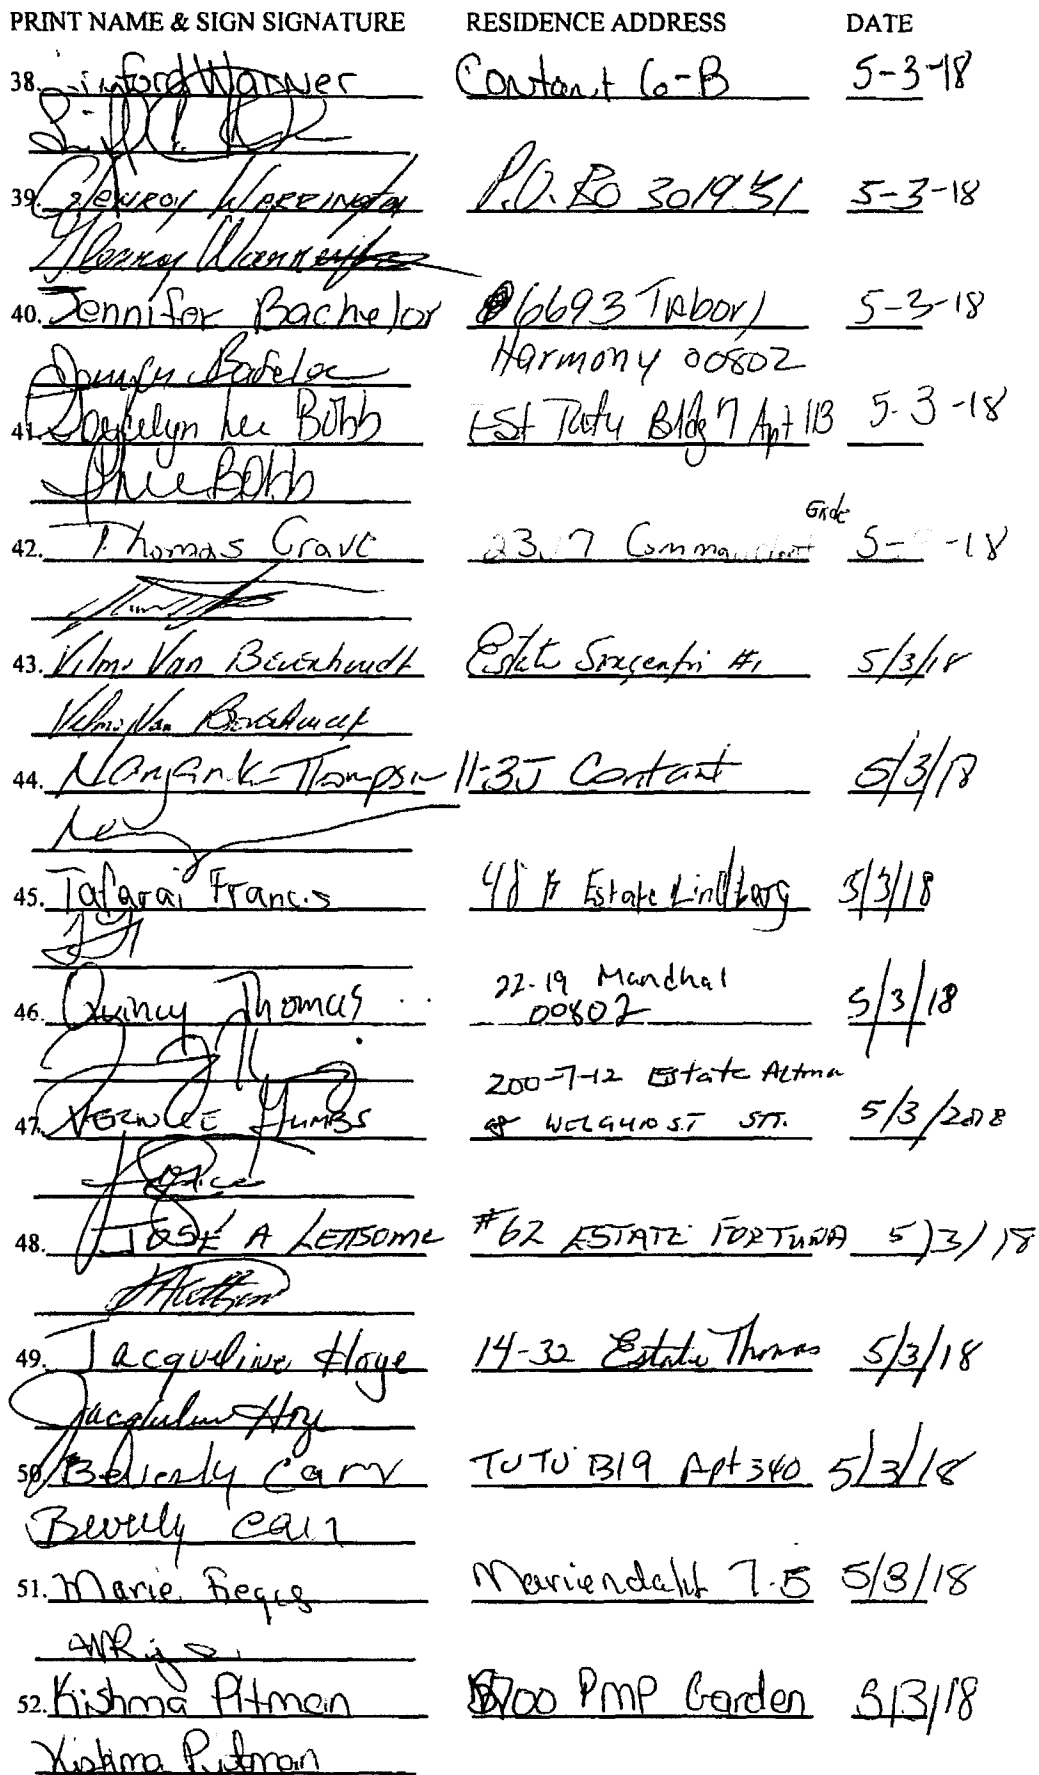 PRINT NAME & SIGN SIGNATURE RESIDENCE ADDRESS DATE
38. Linford Warner Contant 6-B 5-3-18
39. Glenroy Warrington P.O. Bo 301951 5-3-18
Glenroy Warrington
40. Jennifer Bachelor 6693 Tabor/ 5-3-18
Harmony 00802
Jennifer Bachelor
41. Joycelyn Lee Bobb Est Tutu Bldg 7 Apt 11B 5-3-18
Lee Bobb
Gade
42. Thomas Grave 23, 7 Commandant 5- -18
43. Vilma Van Beverhoudt Estate #1 5/3/18
Vilma Van Beverhoudt
44. Thompson 11-3J Contant 5/3/18
45. Tafarai Francis 48 B Estate Lindberg 5/3/18
22-19 Mandhal
46. Quincy Thomas 00802 5/3/18
200-7-12 Estate Altona
47. Gumbs & WELGUNST STT. 5/3/2018
48. JOSE A LETTSOME #62 ESTATE FORTUNA 5/3/18
49. Jacqueline Hoye 14-32 Estate Thomas 5/3/18
Jacqueline Hoye
50. Beverly Carr TUTU B19 Apt 340 5/3/18
Beverly Carr
51. Marie Regis Mariendahl 7-5 5/3/18
52. Kishma Pitman 700 PMP Garden 5/3/18
Kishma Pitman